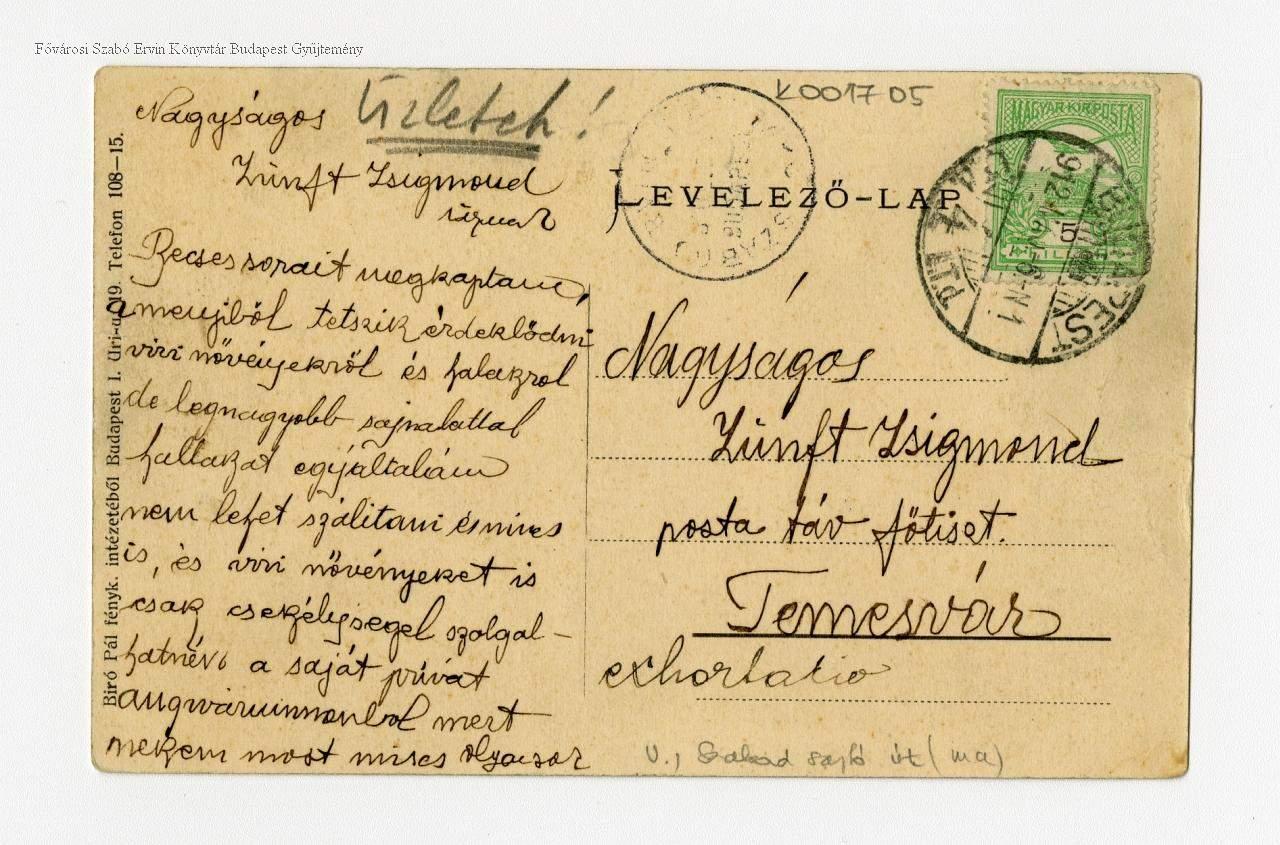 Fővárosi Szabó Ervin Könyvtár Budapest Gyűjtemény
K001705
Üzletek!
Nagyságos
Zünft Zsigmond
úrnak
Becses sorait megkaptam,
amenjiből tetszik érdeklődni
vizi növényekről és halakrol
de legnagyobb sajnalattal
hallakat egyáltalián
nem lehet szálitani ésnincs
is, és vizi növényeket is
csak csekélységel szolgal-
hatnék a saját privát
mert
nekem most nincs olyan
Biró Pál fényk. intézetéből Budapest I. Úri-u. 19. Telefon 108—15.
LEVELEZŐ-LAP
MAGYAR KIR. POSTA
5
FILLÉR
BUDAPEST
912
Nagyságos
Zünft Zsigmond
posta táv főtiszt.
Temesvár
exhortatio
V., Szabad sajtó út (ma)